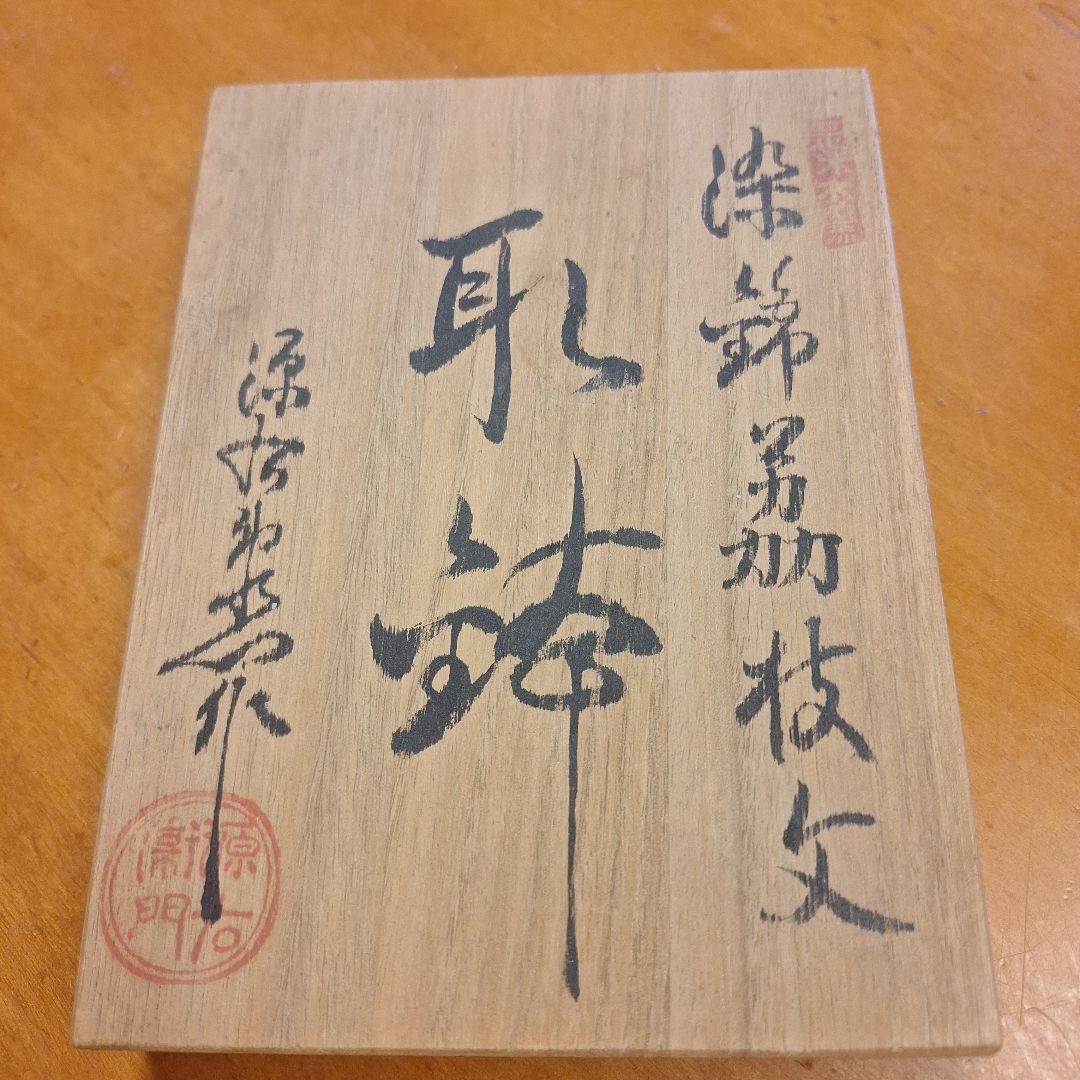 染錦荔枝文
取鉢
源右衛門作
源右
衛門